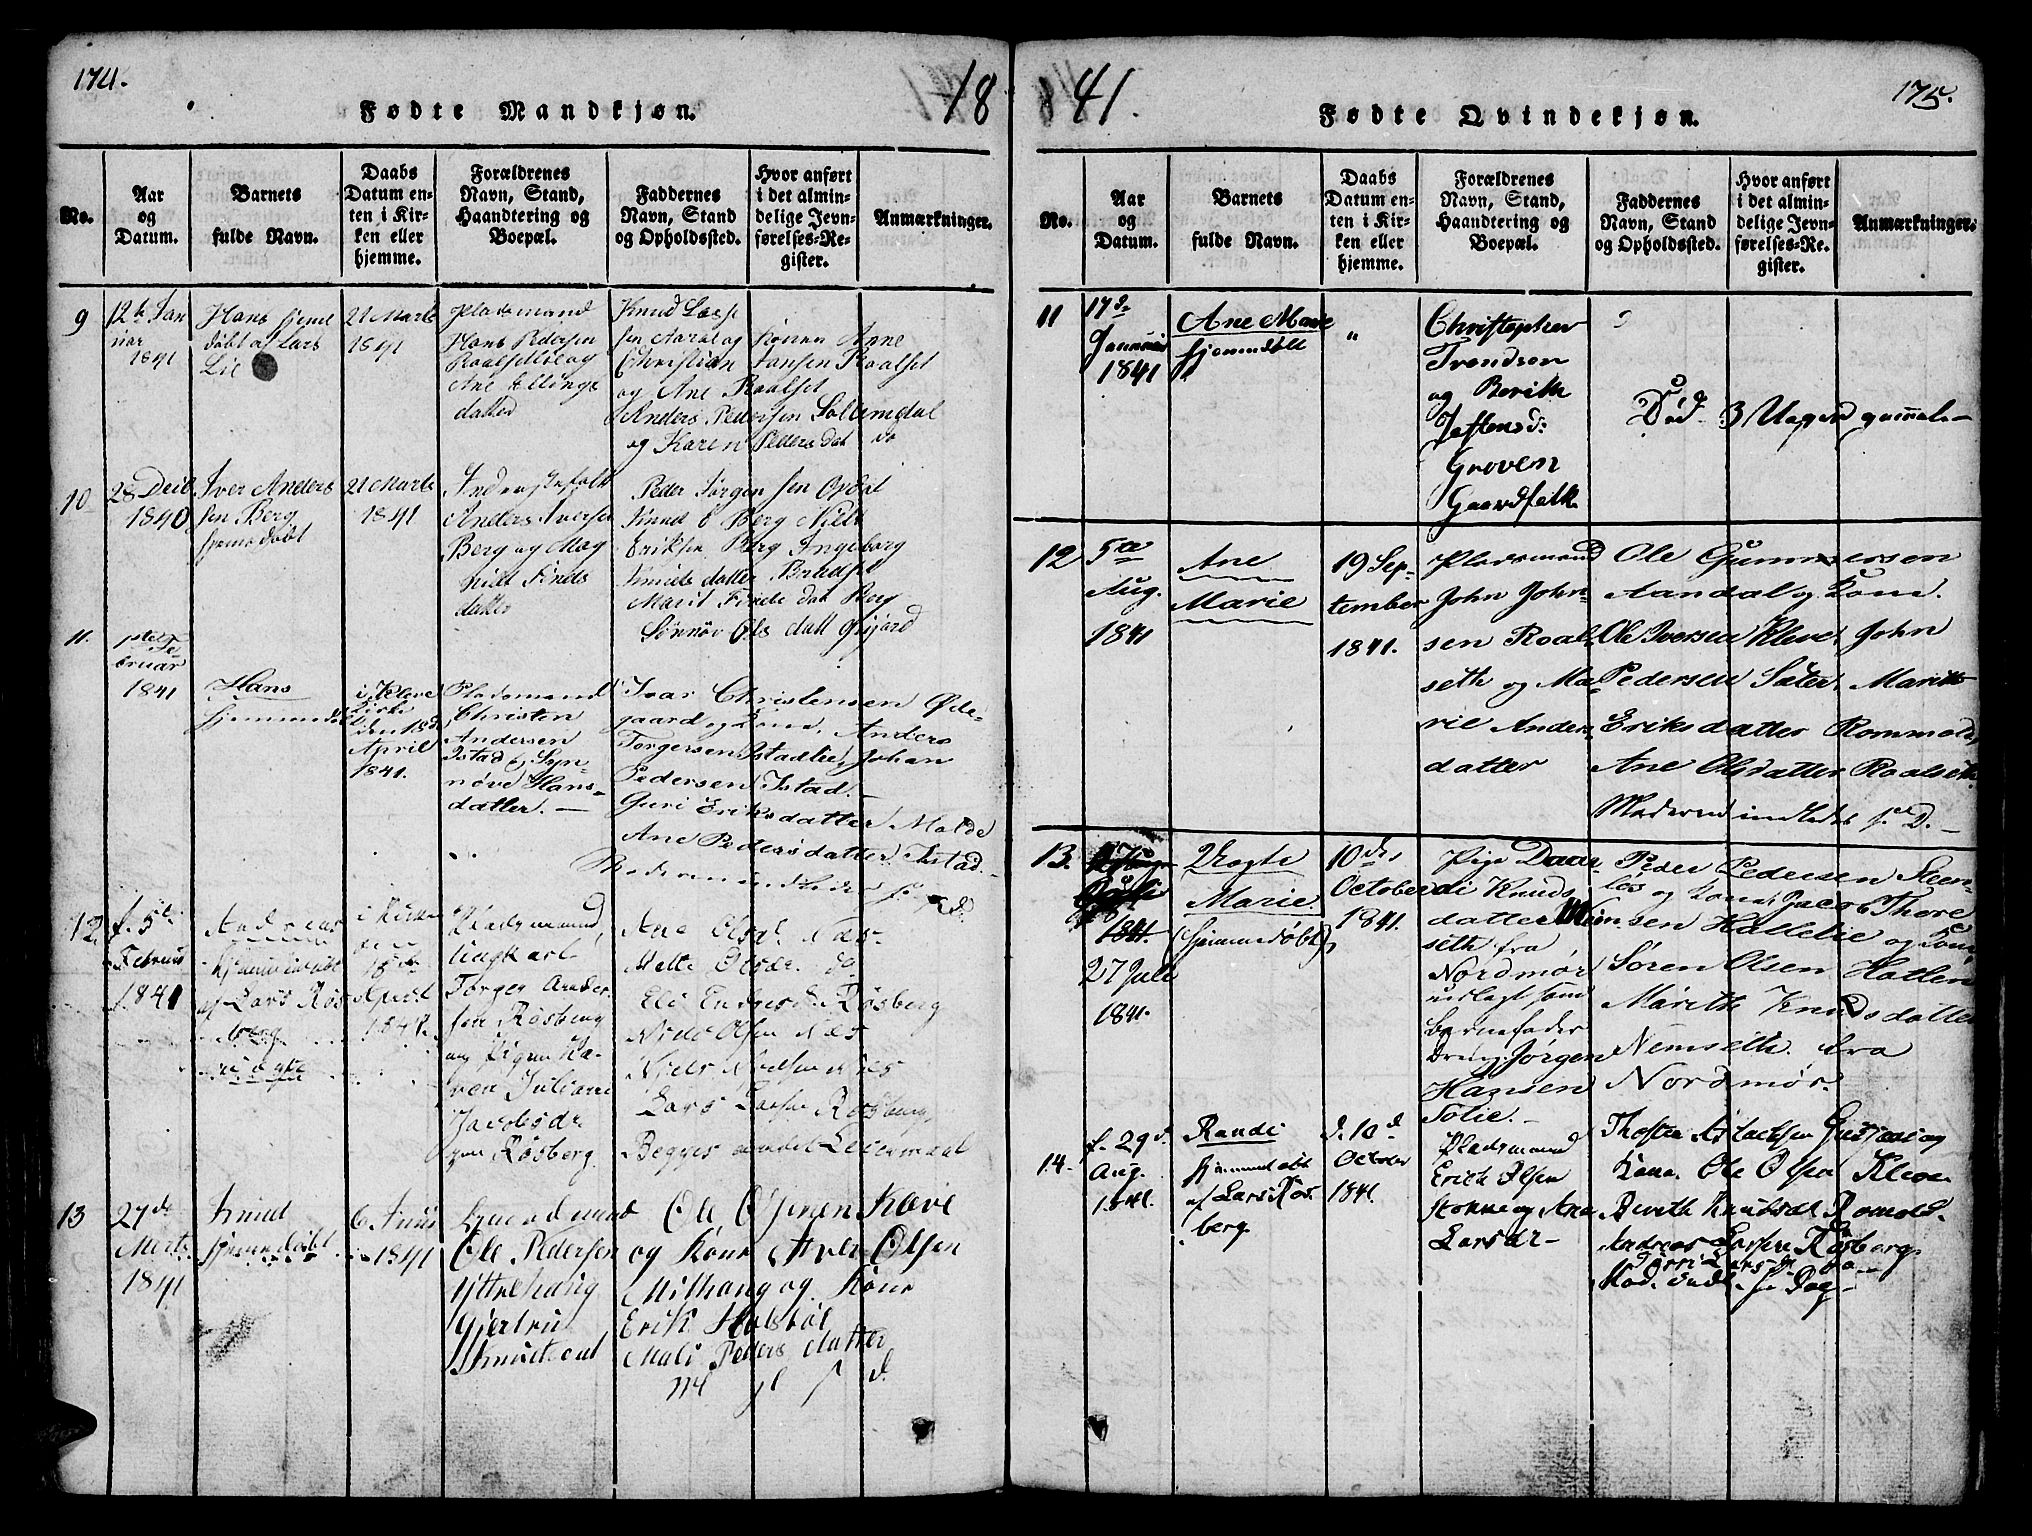 174.
18
Fødte Mandkjøn.
No.
Aar
og
Datum.
Barnets
fulde Navn.
Daabs
Datum en-
ten i Kir-
ken eller
hjemme.
Forældrenes
Navn, Stand,
Haandtering og
Boepæl.
Faddernes
Navn, Stand
og Opholdssted.
Hvor anført
i det almin-
delige Jevn-
førelses-Re-
gister.
Anmærkninger.
9
12te Jan
uar
1841
Hans hjeme
døbt af Lars
Lie
21 Marts
1841
Pladsmand
Hans Pedersen
og
Ane Ellings
datter
Knud
sen Aarøe og Konen Anne
Christian Jansen Roalset
og Ane Roalset
Anders Pedersen Solemdal
og Karen Peders dat do
10
28 Decb
1840
Iver Anders
sen Berg
hjemedøbt
21 Marts
1841
Anders Iversen
Berg og Mag
hild Finds
datter
Peder Jørgen sen Opdal
Knud E Berg Nils
Eriksen Berg Ingeborg
Knuds datter
Marit Finds dat Berg
Sønnøv Ols datt
11.
1ste Fe
bruar
1841
Hans
hjemmedøbt
i Kleve
Kirke
den 18d
April
1841.
Pladsmand
Christen
Andersen
Istad & Syn-
nøve Hans-
datter. —
Ivar Christensen Øde-
gaard og Kone, Anders
Torgersen Istadlie, Johan
Pedersen Istad. —
Guri Eriksdatter Molde
Ane Pedersdatter Istad. —
Moderen indledes s. D.
12.
f. 5te
Februar
1841
Andreas
hjemmedøbt
af Lars Røs
berg
i Kirken
den
18de
April
1841.
Pladsmand,
Ungkarl
Torger Ander
sen Røsberg
og Pigen Ka-
ren Juliane
Jacobsdr
Røsberg.
Ane Olsd. Næs.
Mette Olsdr. do
Eli Endresd. Røsberg
Niels Olsen Næs
Niels Nielsen Næs
Lars Larsen Røsberg,
Begges andet Leiermaal
13
27de
Marts
1841
Knud
hjemmedøbt
6 Juni
1841
Gaardmand
Ole Pedersen
Gjertru
Knudsdat
Ole Iversen Kleve
og Kone Iver Olsen
og Kone
Erik Holsbøl
Mali Peders datter
M s d.
41.
175.
Fødte Qvindekjøn.
No.
Aar
og
Datum.
Barnets
fulde Navn.
Daabs
Datum en-
ten i Kir-
ken eller
hjemme.
Forældrenes
Navn, Stand,
Haandtering og
Boepæl.
Faddernes
Navn, Stand
og Opholdssted.
Hvor anført
i det almin-
delige Jevn-
førelses-Re-
gister.
Anmærkninger.
11
17d.
Januari
1841
Ane Marie
hjemmdøbt
"
Christopher
Trondsen
og Berith
Jostensd:
Groven
Gaardfolk.
Død 3 Uger gammel. —
12
5te
Aug.
1841
Ane
Marie
19 Sep-
tember
1841.
Pladsmand
John John-
sen Roal-
seth og Ma-
rit Anders
datter
Ole Gummersen
Aandal og Kone.
Ole Iversen Kleve, John
Pedersen Sæter, Marith
Eriksdatter Rommeld,
Ane Olsdatter Roalseth.
Moderen indledes s. D. —
13.
1841
27 Juli
1841.
Vogte
Marie
(hjemmedøbt)
10 des
October
1841.
Pige Daar-
di Knuds
datter Nim-
seth fra
Nordmør
udlagt som
barnefader
Dreng Jørgen
Hansen
Solie. —
Peder Pedersen Steen-
løs og Kone, Jacob Thore
sen Hallelie og Kone,
Søren Olsen Hatlen
Marith Knudsdatter
Nemseth. fra
Nordmør.
14.
f. 29d.
Aug.
1841.
Randi
hjemmedøbt
af Lars Røs.
berg.
d. 10d
October
1841.
Pladsmand
Erich Olsen
Stokke og Ane
Larsdr —
Thosten Aslachsen og
Kone. Ole Olsen Kleve.
Berith Knudsdt Romeld.
Andreas Larsen Røsberg.
Larsd do —
Mod. indl. s. Dag —